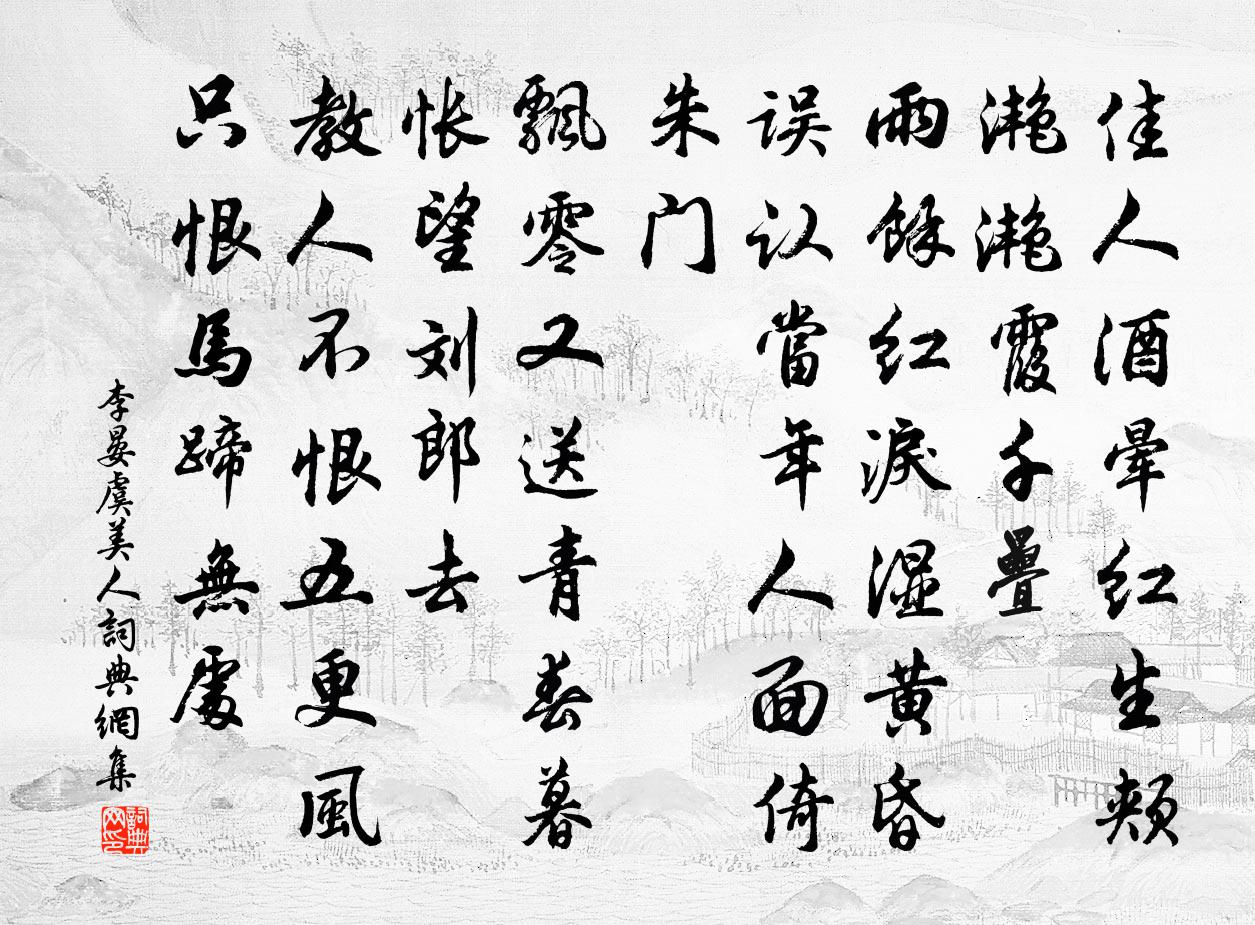 佳人酒暈红生颊
滟滟霞千疊
雨餘红淚湿黄昏
误认當年人面倚
朱门
飄零又送青春暮
怅望刘郎去
教人不恨五更風
只恨馬蹄無處
李晏虞美人詞典網集
詞典网印